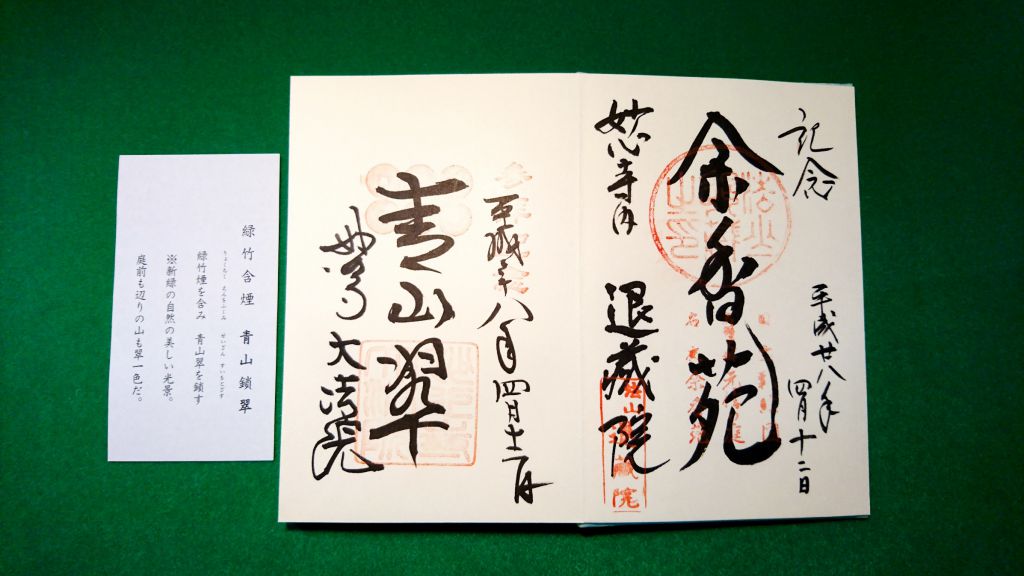 記念
平成廿八年
四月十二日
余香苑
妙心寺内
退蔵院
平成二十八年四月十二日
青山翠
妙心 大法院
緑竹含煙 青山鎖翠
りょくちく えんをふくみ せいざん すいをとざす
緑竹煙を含み 青山翠を鎖す
※新緑の自然の美しい光景。
庭前も辺りの山も翠一色だ。